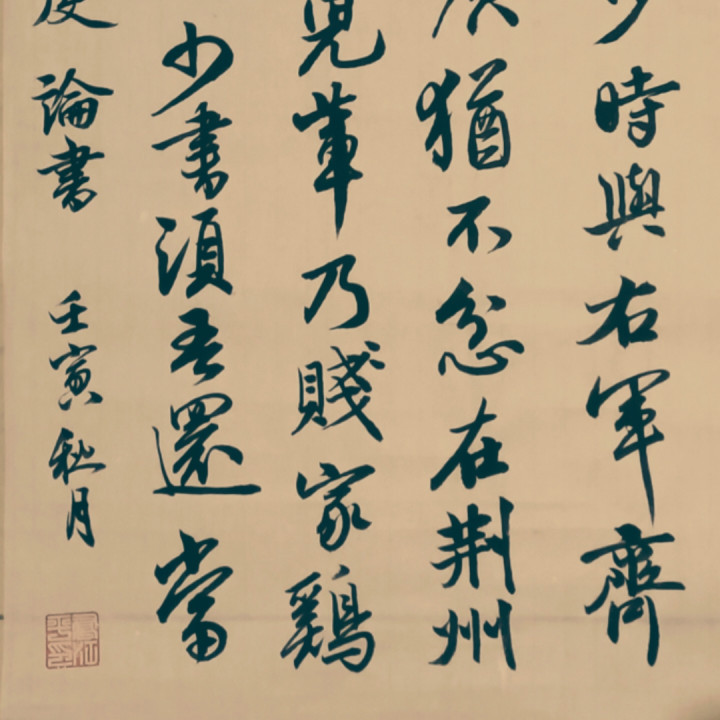 少時與右軍齊
猶不忿在荆州
兒軰乃賤家鷄
少書須吾還當
論書 壬寅秋月